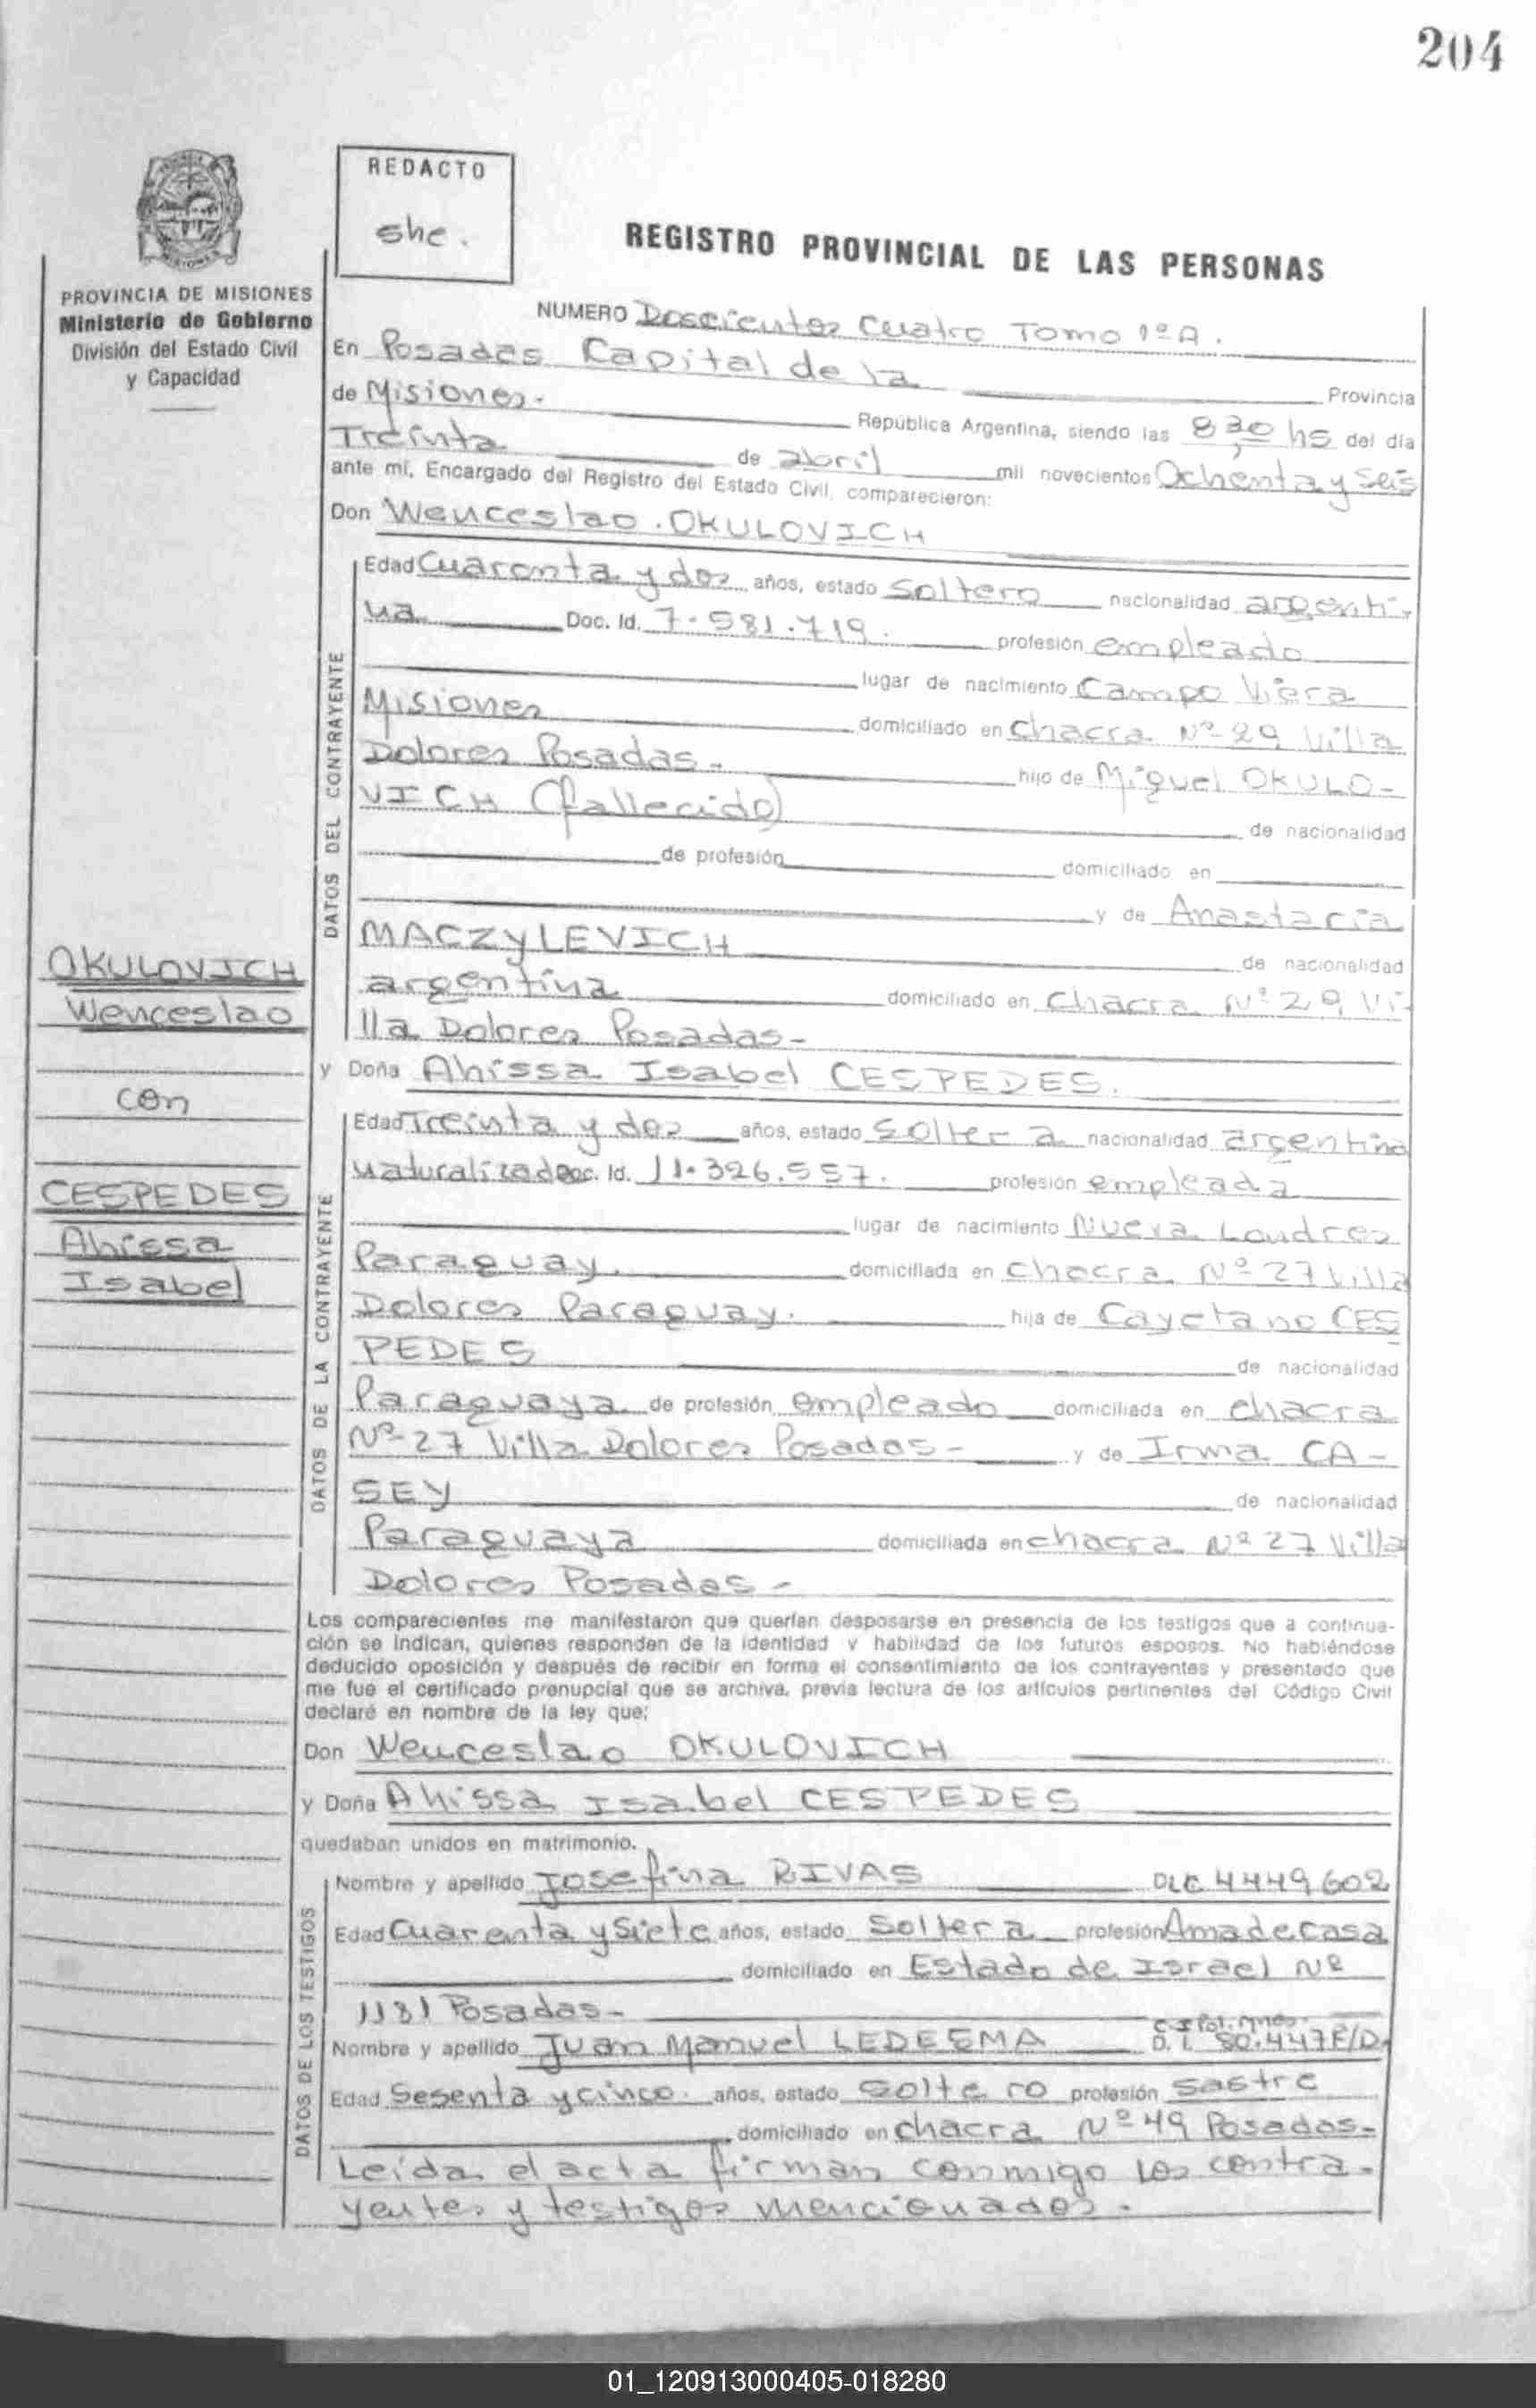 204
REDACTO
she.
REGISTRO PROVINCIAL DE LAS PERSONAS
PROVINCIA DE MISIONES
Ministerio de Gobierno
División del Estado Civil
y Capacidad
NUMERO Doscientos Cuatro Tomo 1º A.
En Posadas Capital de la Provincia
de Misiones. República Argentina, siendo las 8,30 hs del día
Treinta de abril mil novecientos Ochenta y Seis
ante mi, Encargado del Registro del Estado Civil, comparecieron:
Don Wenceslao OKULOVICH
DATOS DEL CONTRAYENTE
Edad Cuarenta y dos años, estado Soltero nacionalidad argenti-
na Doc. Id. 7.581.719. profesión empleado
lugar de nacimiento Campo Viera
Misiones domiciliado en Chacra Nº 29 Villa
Dolores Posadas- hijo de Miguel OKULO-
VICH (fallecido) de nacionalidad
de profesión domiciliado en
y de Anastacia
MACZYLEVICH de nacionalidad
argentina domiciliado en Chacra Nº 29 Vi-
lla Dolores Posadas-
y Doña Ahissa Isabel CESPEDES.
DATOS DE LA CONTRAYENTE
Edad Treinta y dos años, estado Soltera nacionalidad argentina
naturalizada Doc. Id. 11.326.557. profesión empleada
lugar de nacimiento Nueva Londres
Paraguay. domiciliada en Chacra Nº 27 Villa
Dolores Paraguay. hija de Cayetano CES
PEDES de nacionalidad
Paraguaya de profesión empleado domiciliada en chacra
Nº 27 Villa Dolores Posadas- y de Irma CA-
SEY de nacionalidad
Paraguaya domiciliada en chacra Nº 27 Villa
Dolores Posadas-
OKULOVICH
Wenceslao
con
CESPEDES
Ahissa
Isabel
Los comparecientes me manifestaron que querían desposarse en presencia de los testigos que a continua-
ción se indican, quienes responden de la identidad y habilidad de los futuros esposos. No habiéndose
deducido oposición y después de recibir en forma el consentimiento de los contrayentes y presentado que
me fue el certificado prenupcial que se archiva, previa lectura de los artículos pertinentes del Código Civil
declaré en nombre de la ley que;
Don Wenceslao OKULOVICH
y Doña Ahissa Isabel CESPEDES
quedaban unidos en matrimonio.
DATOS DE LOS TESTIGOS
Nombre y apellido Josefina RIVAS DLC 4449602
Edad Cuarenta y Siete años, estado Soltera profesión Ama de Casa
domiciliado en Estado de Israel Nº
1131 Posadas-
C.I Pol. Mnes.
Nombre y apellido Juan Manuel LEDESMA D.I. 80.447 E/D.
Edad Sesenta y cinco. años, estado Soltero profesión Sastre
domiciliado en chacra Nº 49 Posadas-
Leída el acta firman conmigo los contra-
yentes y testigos mencionados.
01_120913000405-018280